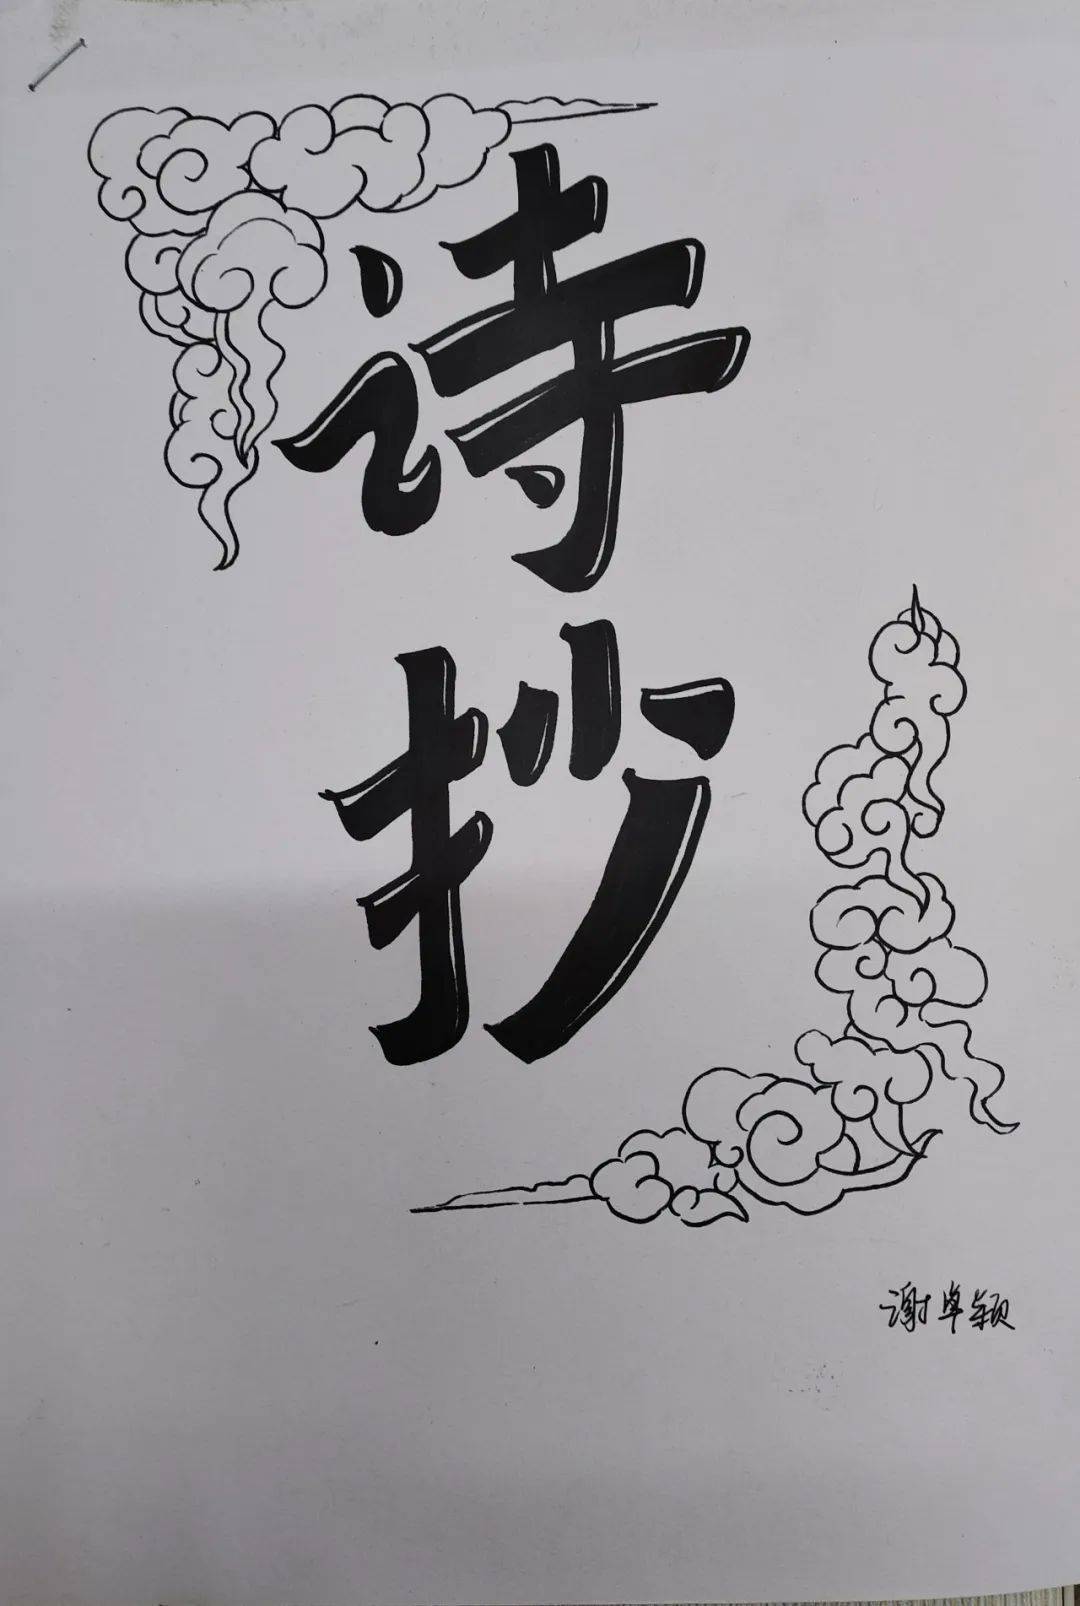 诗抄
谢卓颖